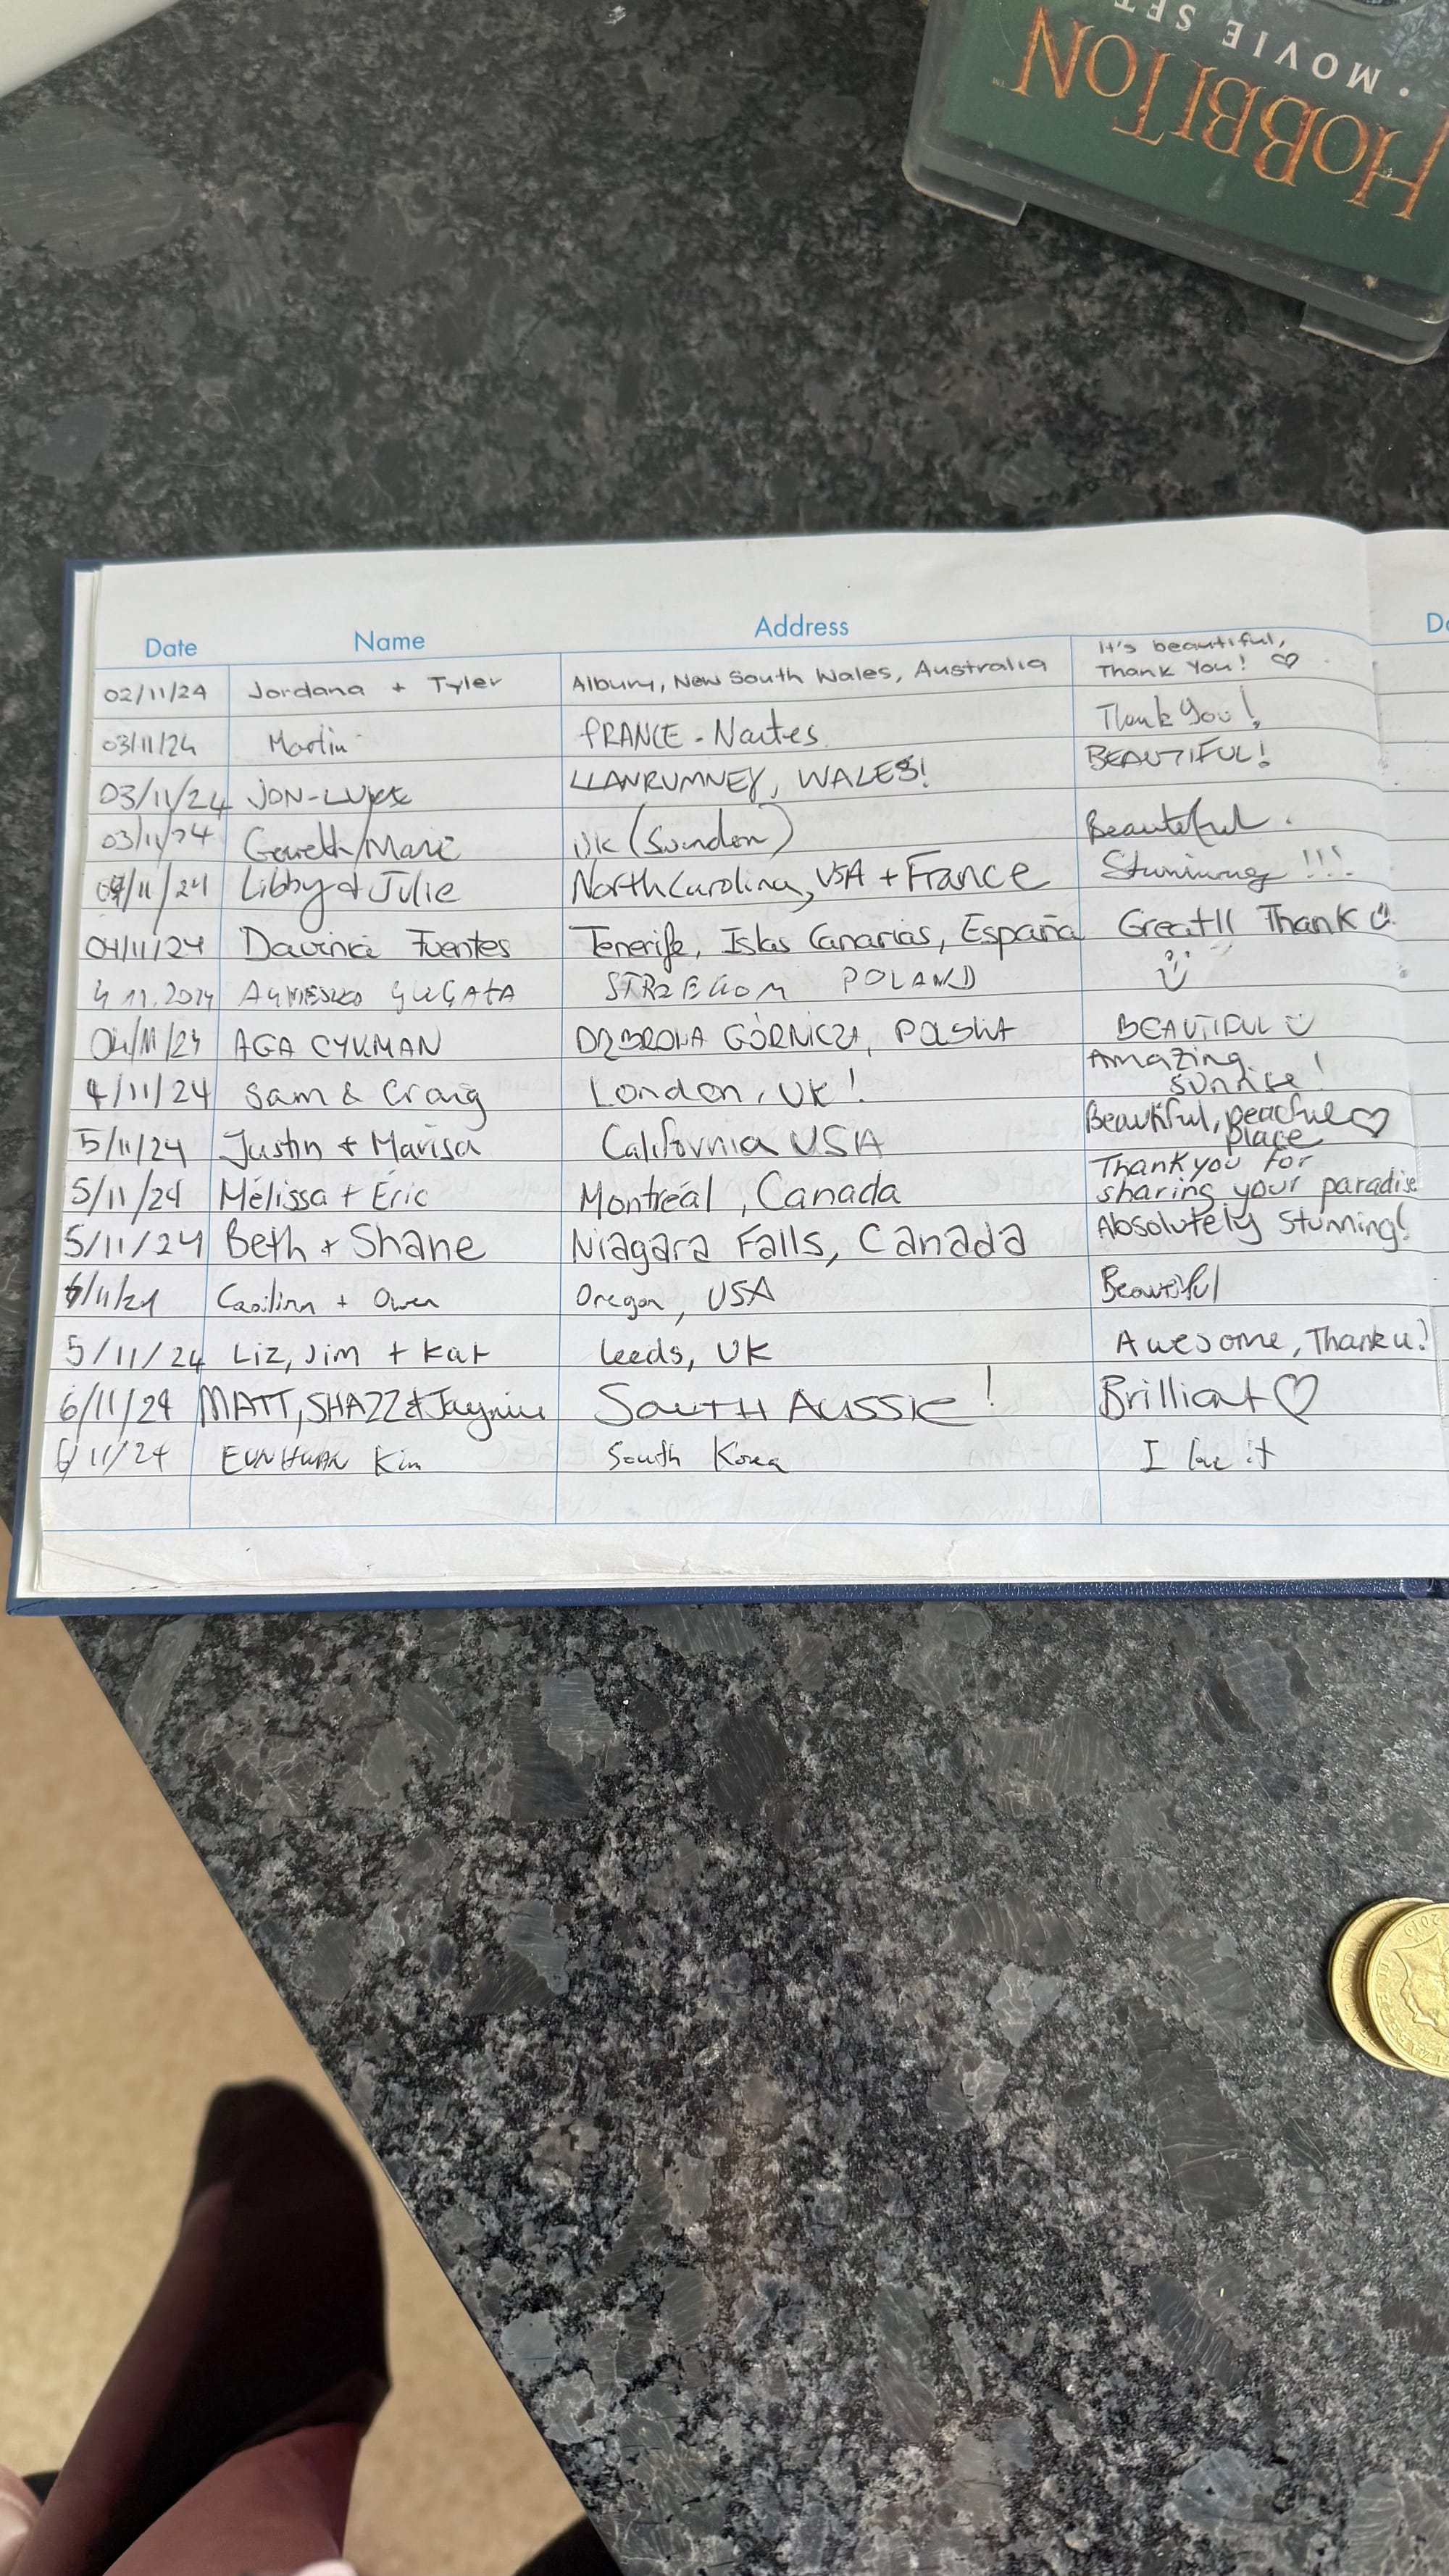 HOBBITON™
• MOVIE SET
Date Name Address
02/11/24 Jordana + Tyler Albury, New South Wales, Australia It's beautiful,
Thank You! ♡
03/11/24 Martin FRANCE - Nantes Thank you!
03/11/24 JON-LUKE LLANRUMNEY, WALES! BEAUTIFUL!
03/11/24 Gareth/Marie UK (Swindon) Beautiful.
04/11/24 Libby & Julie North Carolina, USA + France Stunning !!!
04/11/24 Davinia Fuentes Tenerife, Islas Canarias, España Great!! Thank U
4.11.2024 STRZEGOM POLAND
04/11/24 AGA CYKMAN DĄBROWA GÓRNICZA, POLSKA BEAUTIFUL
4/11/24 Sam & Craig London, UK! Amazing
sunrise!
5/11/24 Justin + Marisa California USA Beautiful, peaceful ♡
place
5/11/24 Mélissa + Éric Montréal, Canada Thank you for
sharing your paradise
5/11/24 Beth + Shane Niagara Falls, Canada Absolutely Stunning!
+ Owen Oregon, USA Beautiful
5/11/24 Liz, Jim + Kat Leeds, UK Awesome, Thank u!
6/11/24 MATT, SHAZZ & South Aussie! Brilliant ♡
6/11/24 EUNHWAN Kim South Korea I love it